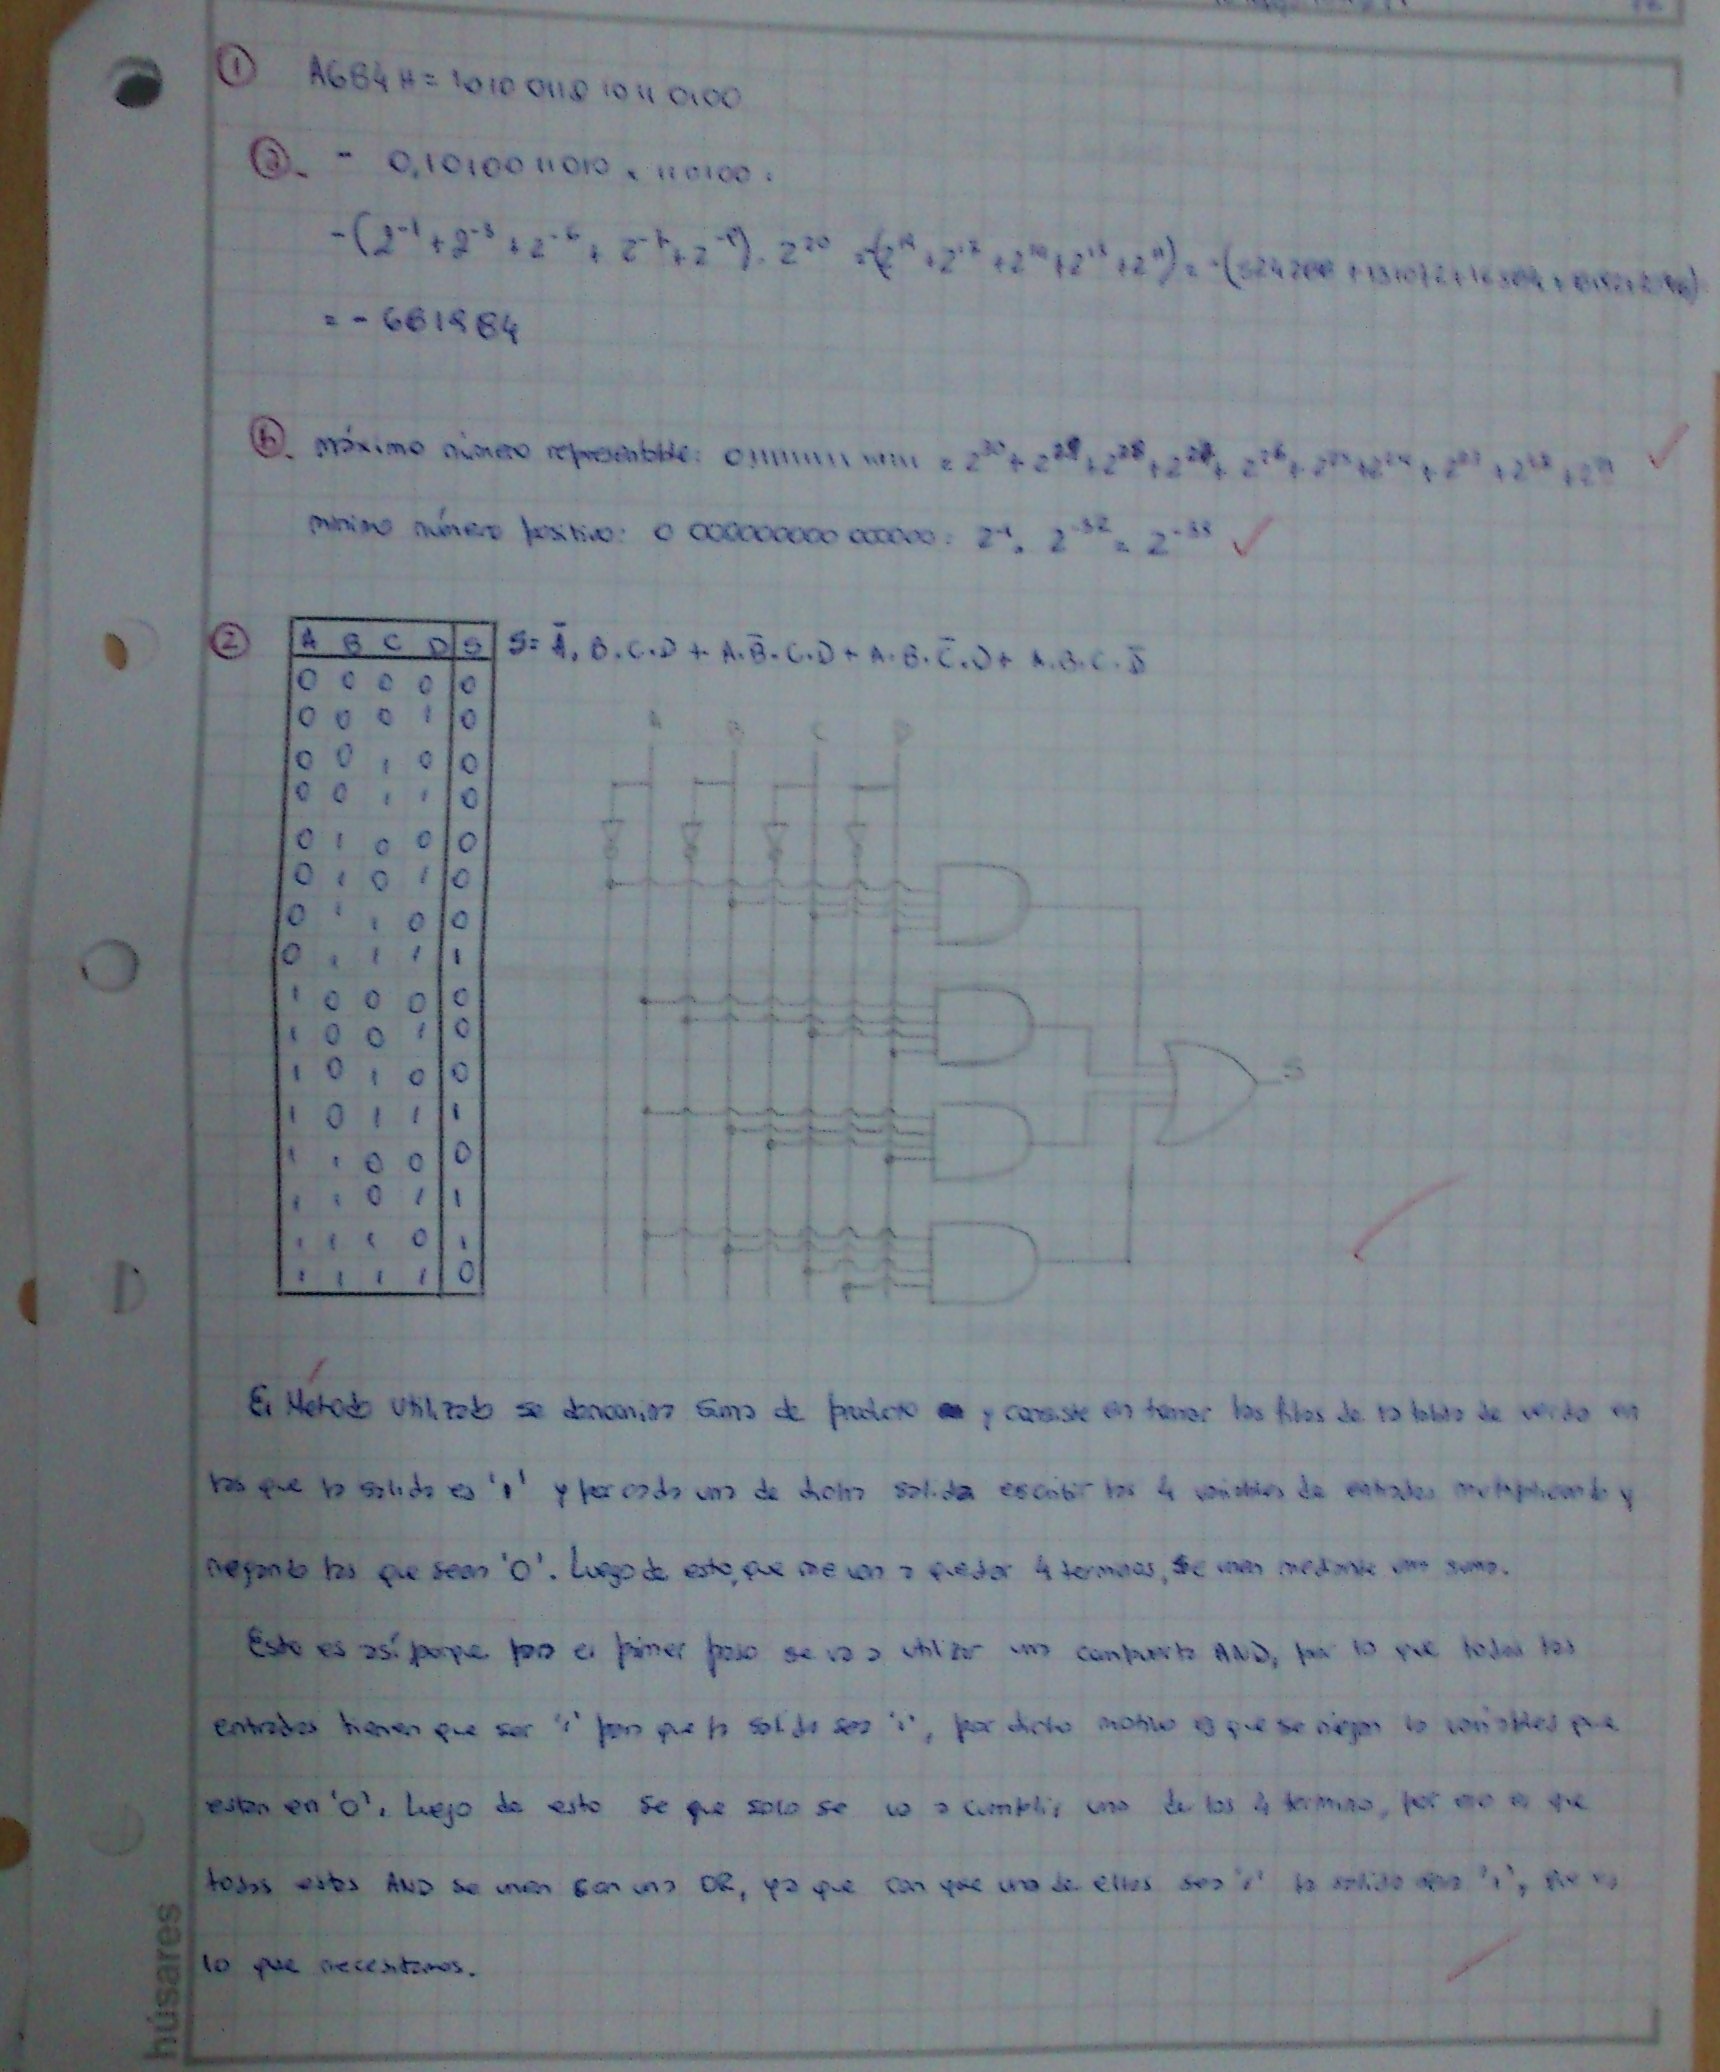 ① A6B4 H = 1010 0110 1011 0100
ⓐ. - 0,1010011010 . 110100 .
-(2⁻¹ + 2⁻³ + 2⁻⁶ + 2⁻⁷ + 2⁻⁹). 2²⁰ = -(2¹⁹ + 2¹⁷ + 2¹⁴ + 2¹³ + 2¹¹) = -(524288 + 131072 + 16384 + 8192 + 2048)
= - 681984
ⓑ. máximo número representable: 0 111111111 111111 = 2³⁰ + 2²⁹ + 2²⁸ + 2²⁷ + 2²⁶ + 2²⁵ + 2²⁴ + 2²³ + 2²² + 2²¹
minimo número positivo: 0 000000000 000000 : 2⁻¹. 2⁻³² = 2⁻³³
② A B C D S S = Ā. B. C. D + A. B̄. C. D + A. B. C̄. D + A. B. C. D̄
0 0 0 0 0
0 0 0 1 0
0 0 1 0 0
0 0 1 1 0
0 1 0 0 0
0 1 0 1 0
0 1 1 0 0
0 1 1 1 1
1 0 0 0 0
1 0 0 1 0
1 0 1 0 0
1 0 1 1 1
1 1 0 0 0
1 1 0 1 1
1 1 1 0 1
1 1 1 1 0
A B C D
S
El Método utilizado se denomina suma de producto y consiste en tomar las filas de la tabla de verdad en
las que la salida es '1' y por cada una de dicha salida escribir las 4 variables de entradas multiplicando y
negando las que sean '0'. Luego de esto, que me van a quedar 4 terminos, se unen mediante una suma.
Esto es así porque para el primer paso se va a utilizar una compuerta AND, por lo que todas las
entradas tienen que ser '1' para que la salida sea '1', por dicho motivo es que se niegan la variables que
estan en '0'. Luego de esto se que solo se va a cumplir uno de los 4 termino, por eso es que
todos estos AND se unen con una OR, ya que con que uno de ellos sea '1' la salida sera '1', que es
lo que necesitamos.
húsares